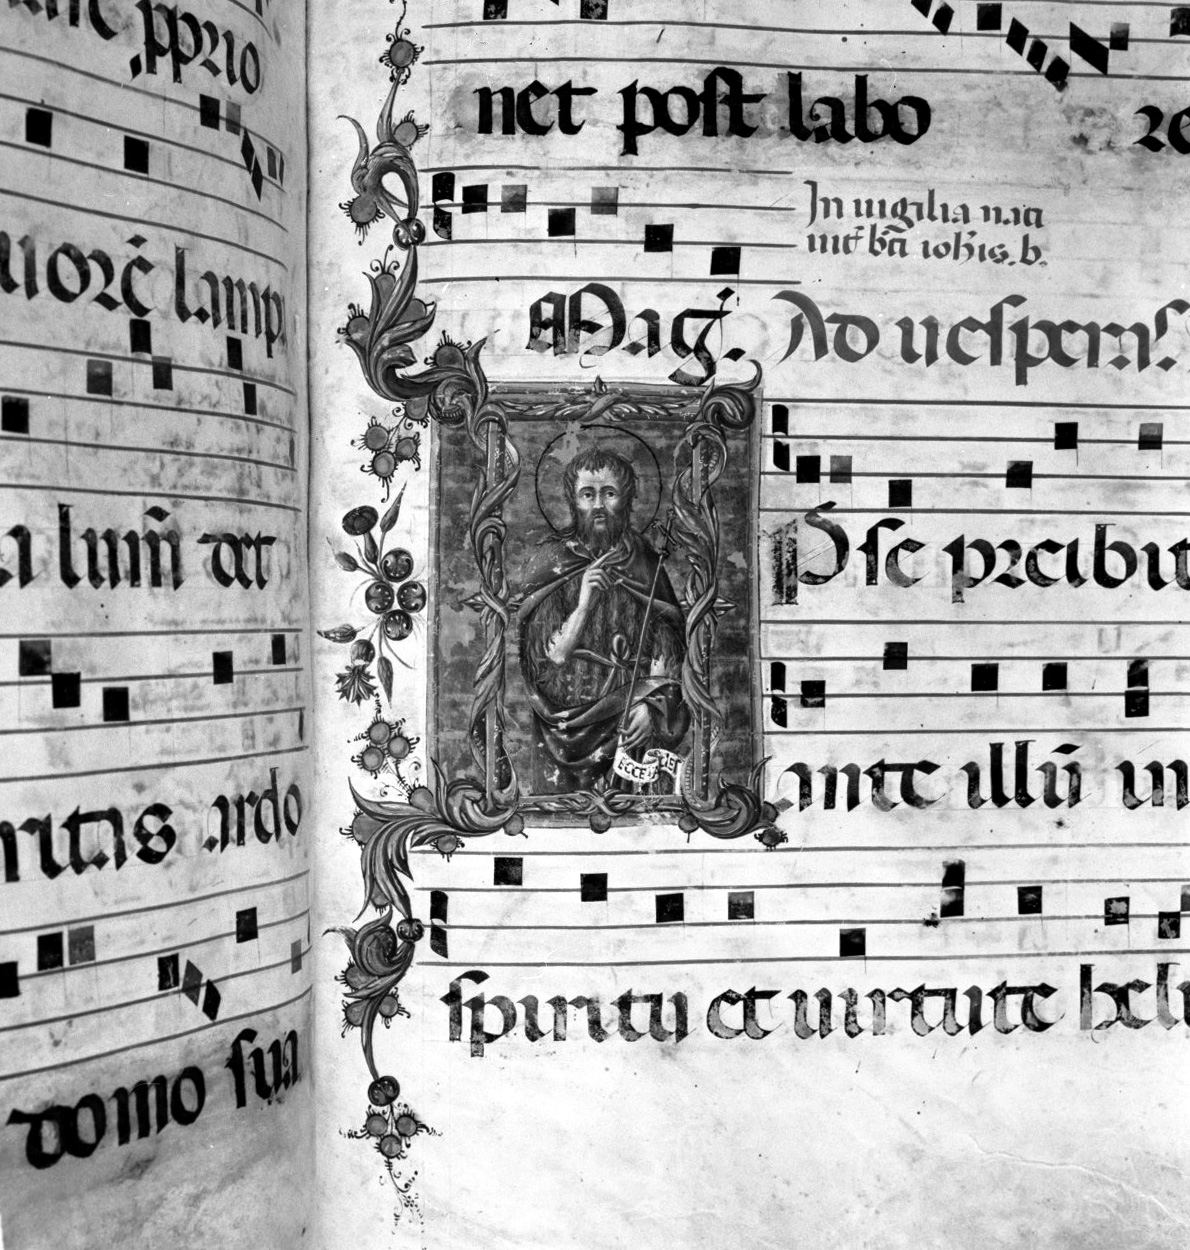 pprio
uorē lamp
a lum̄ det
ritas ardo
domo sua
net post labo re
In uigilia nati
nit̄ bt̄i ioh̄is. b.
Mag. Ad uesperas
Ipse precibit
ECCE
ante illū in
spiritu et uirtute hely